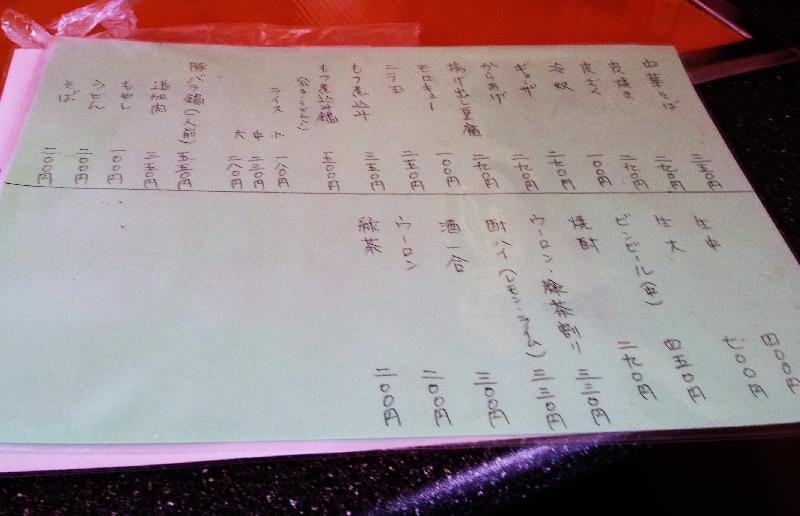 中華そば 三五〇円
皮焼き 二七〇円
二七〇円
冷奴 一〇〇円
二七〇円
からあげ 二七〇円
揚げ出し豆腐 二七〇円
モロキュー 一〇〇円
ニラ玉 二五〇円
もつ煮込み 三五〇円
もつ煮込み鍋 五〇〇円
ライス 小 一八〇円
中 二三〇円
大 二八〇円
五五〇円
もやし 一〇〇円
うどん 二〇〇円
そば 二〇〇円
生中 四〇〇円
生大 七〇〇円
ビンビール(中) 四五〇円
焼酎 二七〇円
ウーロン・緑茶割り 三三〇円
酎ハイ(レモン・ライム) 三三〇円
酒一合 三三〇円
ウーロン 二〇〇円
緑茶 二〇〇円